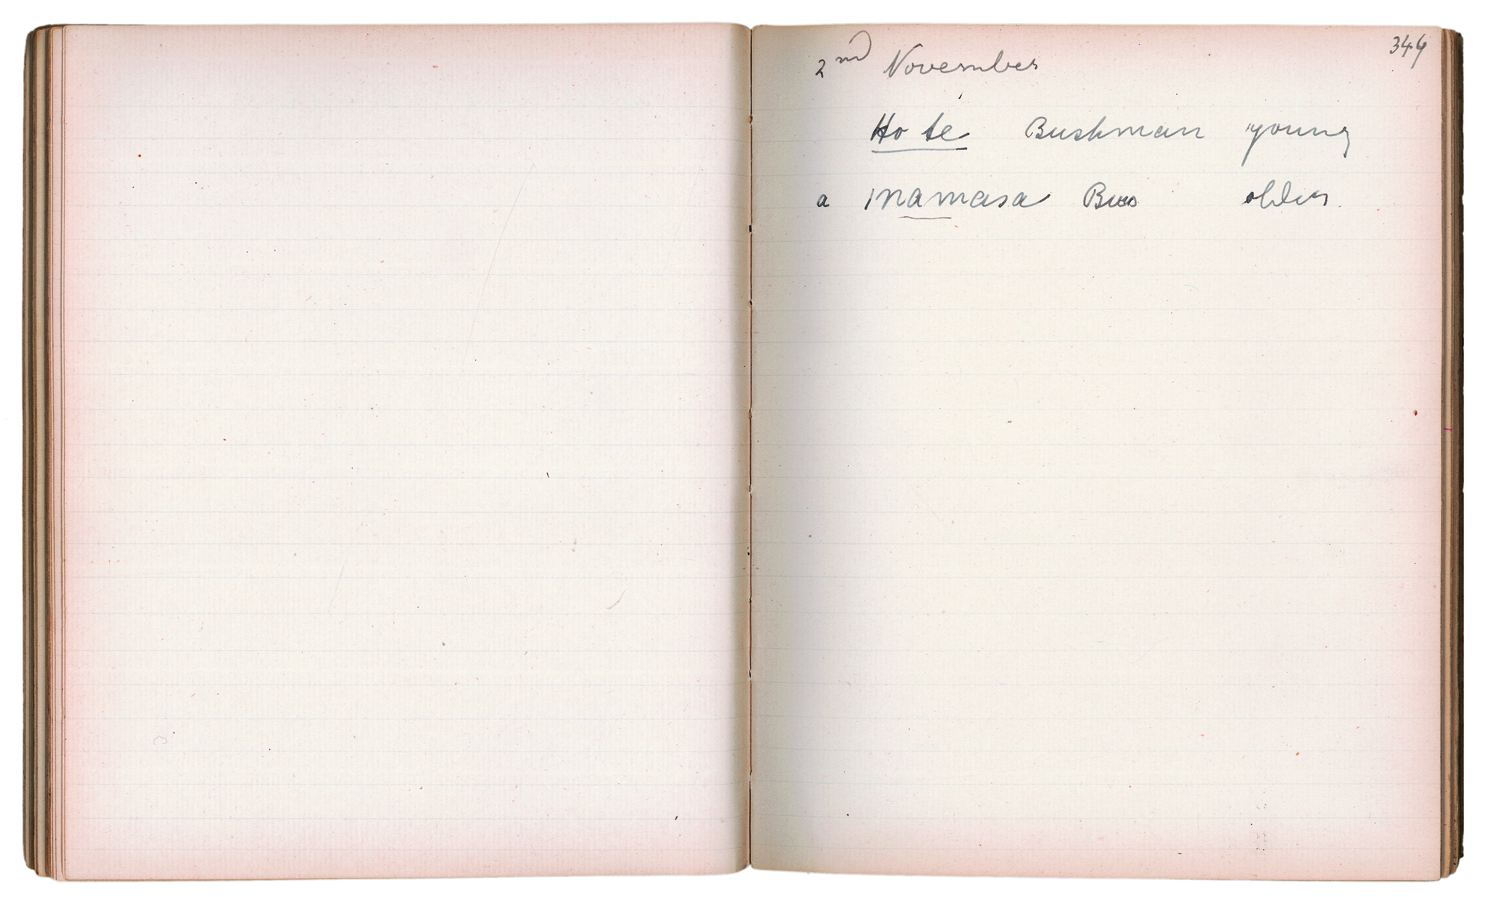 344
2nd November
Ho te Bushman young
a Mamasa Bus older